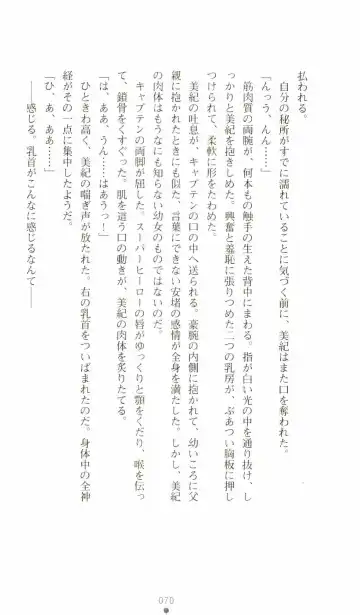 払われる。
自分の秘所がすでに濡れていることに気づく前に、美紀はまた口を奪われた。
「んっう、んん……」
筋肉質の両腕が、何本もの触手の生えた背中にまわる。指が白い光の中を通り抜け、し
っかりと美紀を抱きしめた。興奮と羞恥に張りつめた二つの乳房が、ぶあつい胸板に押し
つけられて、柔軟に形をたわめた。
美紀の吐息が、キャプテンの口の中へ送られる。豪腕の内側に抱かれて、幼いころに父
親に抱かれたときにも似た、言葉にできない安堵の感情が全身を満たした。しかし、美紀
の肉体はもうなにも知らない幼女のものではないのだ。
キャプテンの両脚が屈した。スーパーヒーローの唇がゆっくりと顎をくだり、喉を伝っ
て、鎖骨をくすぐった。肌を這う口の動きが、美紀の肉体を炙りたてる。
「は、ああ、うん……はあうっ！」
ひときわ高く、美紀の喘ぎ声が放たれた。右の乳首をついばまれたのだ。身体中の全神
経がその一点に集中したようだ。
「ひ、あ、ああ……」
――感じる。乳首がこんなに感じるなんて――
070